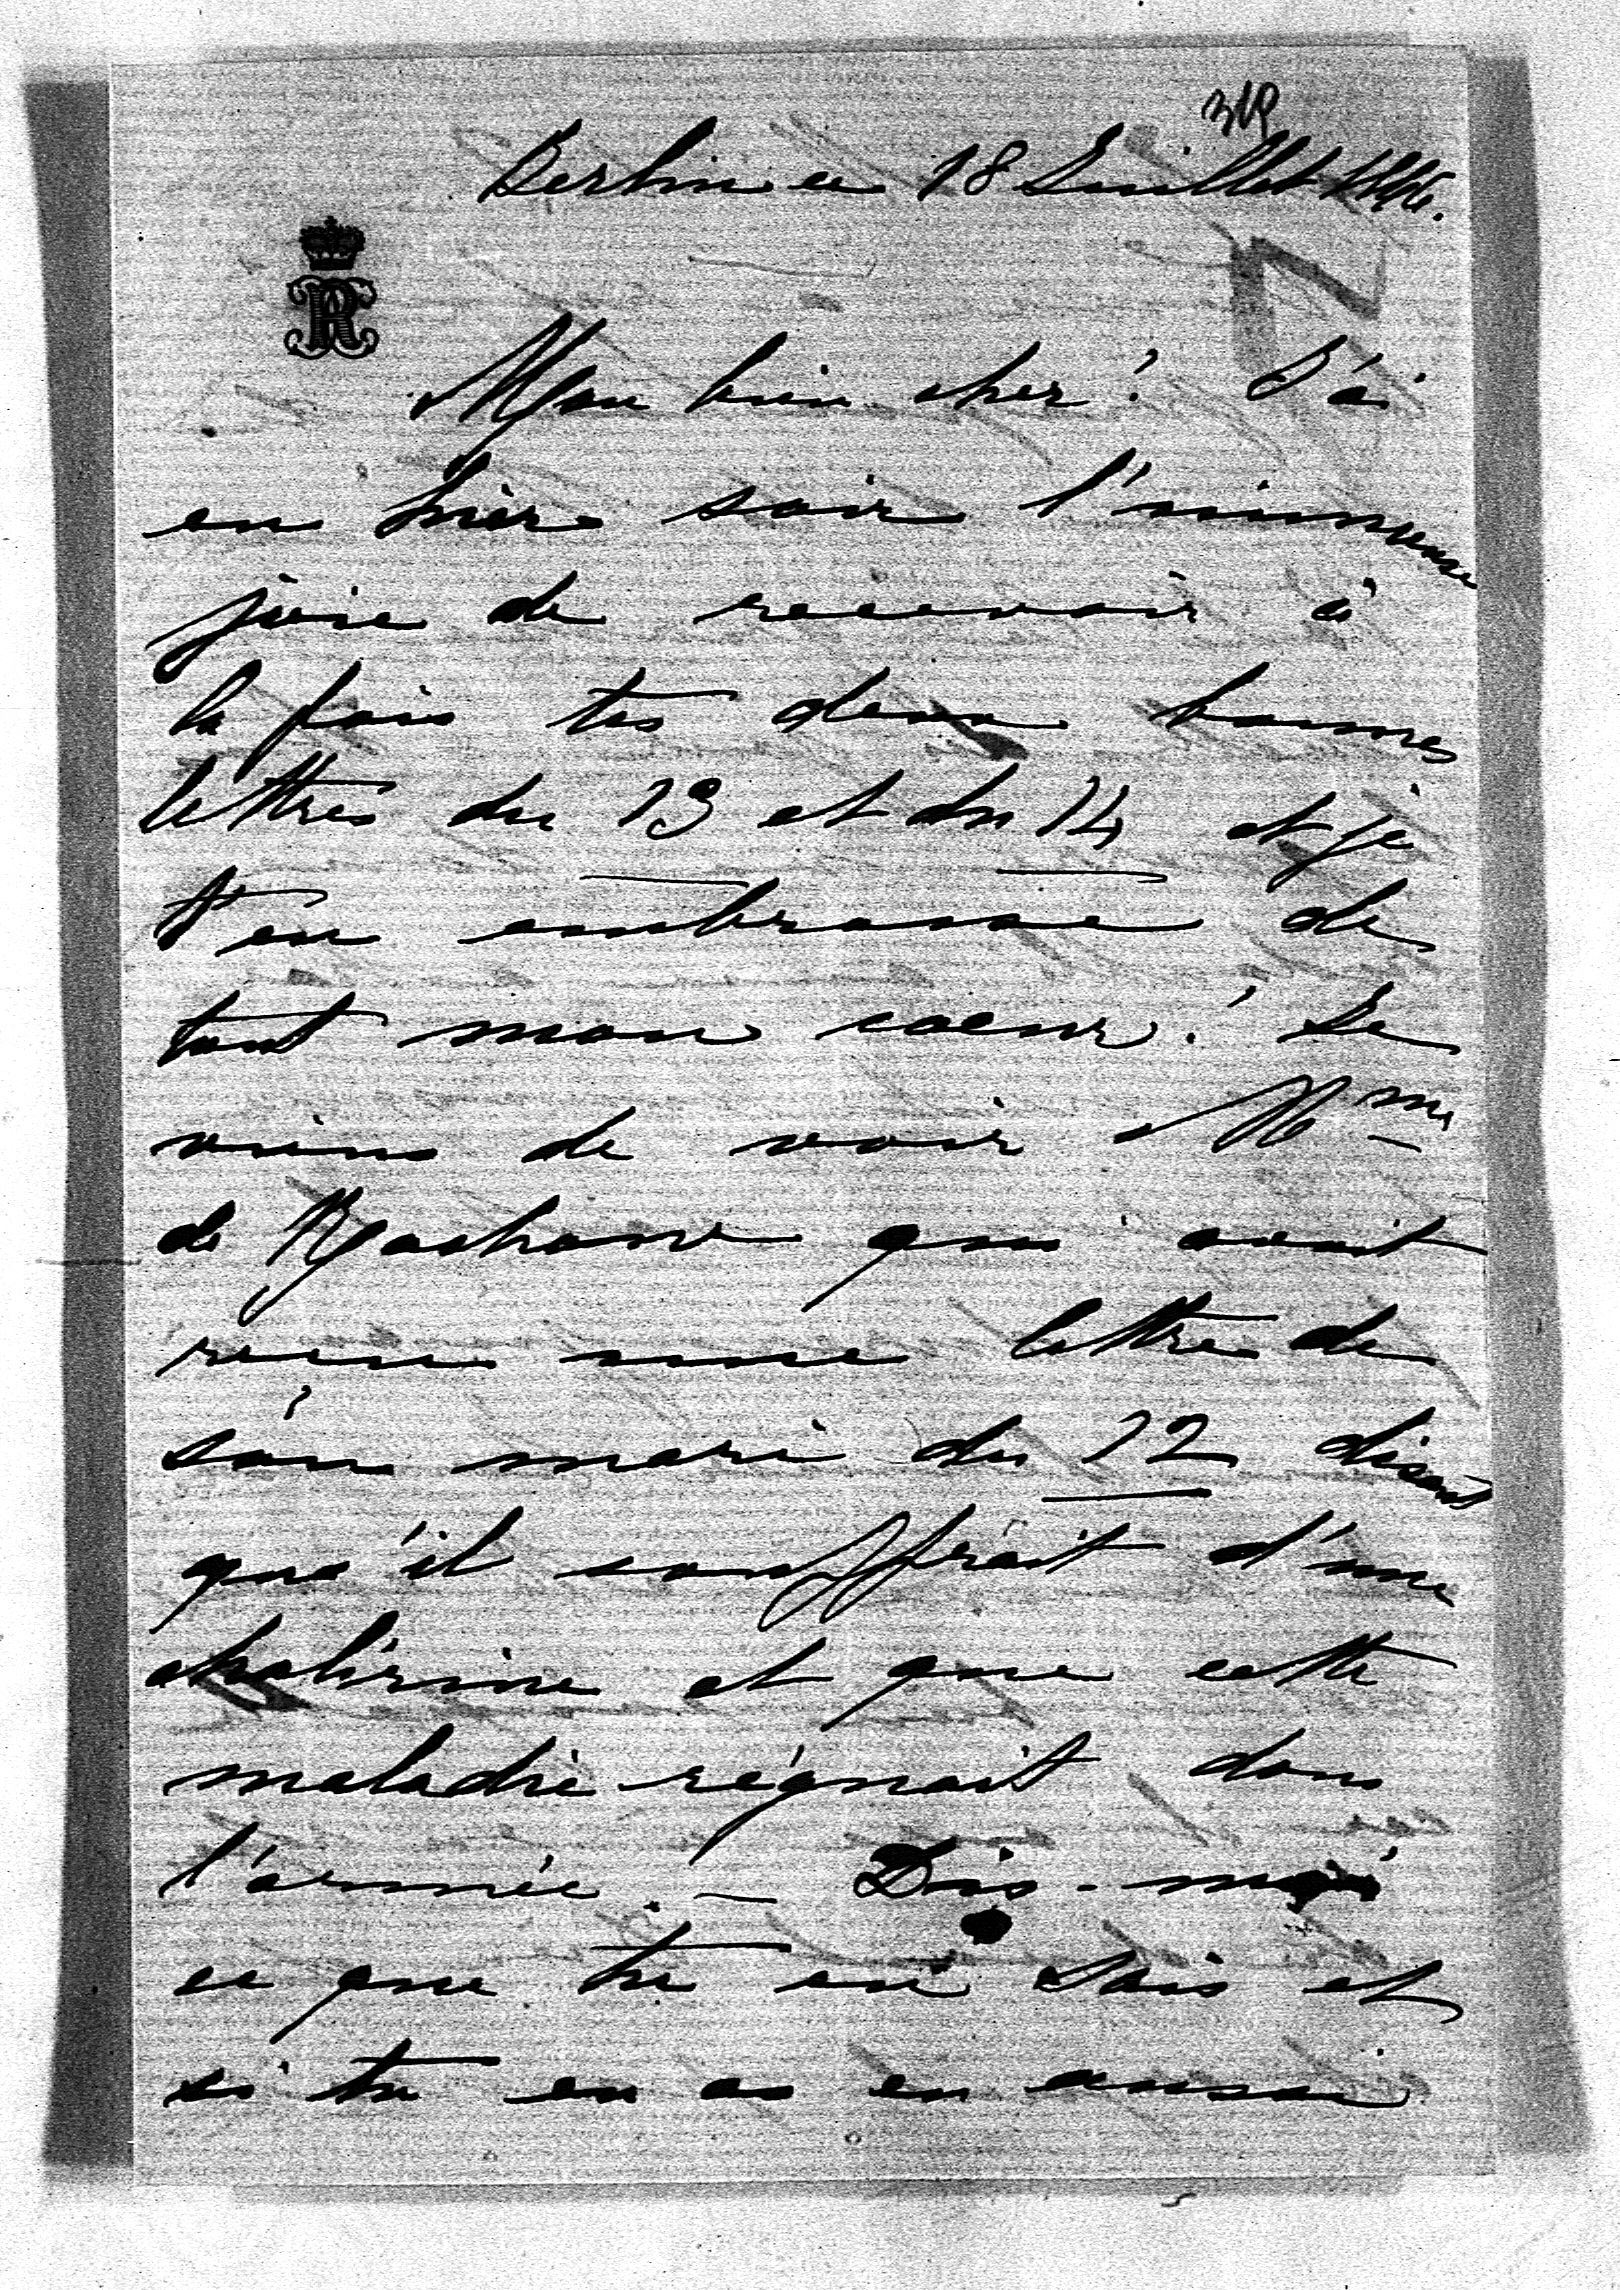 Berlin ce 18 Juillet 1866.
Mon bien cher! J'ai
eu hier soir l'immense
joie de recevoir à
la fois tes deux bonnes
lettres du 13 et du 14 et je
t'en embrasse de
tout mon coeur! Je
viens de voir Mme
de qui avait
reçu une lettre de
son mari du 12 disant
qu'il souffrait d'une
cholérine et que cette
maladie régnait dans
l'armée. — Dis-moi
ce que tu en sais et
si tu en as eu aussi